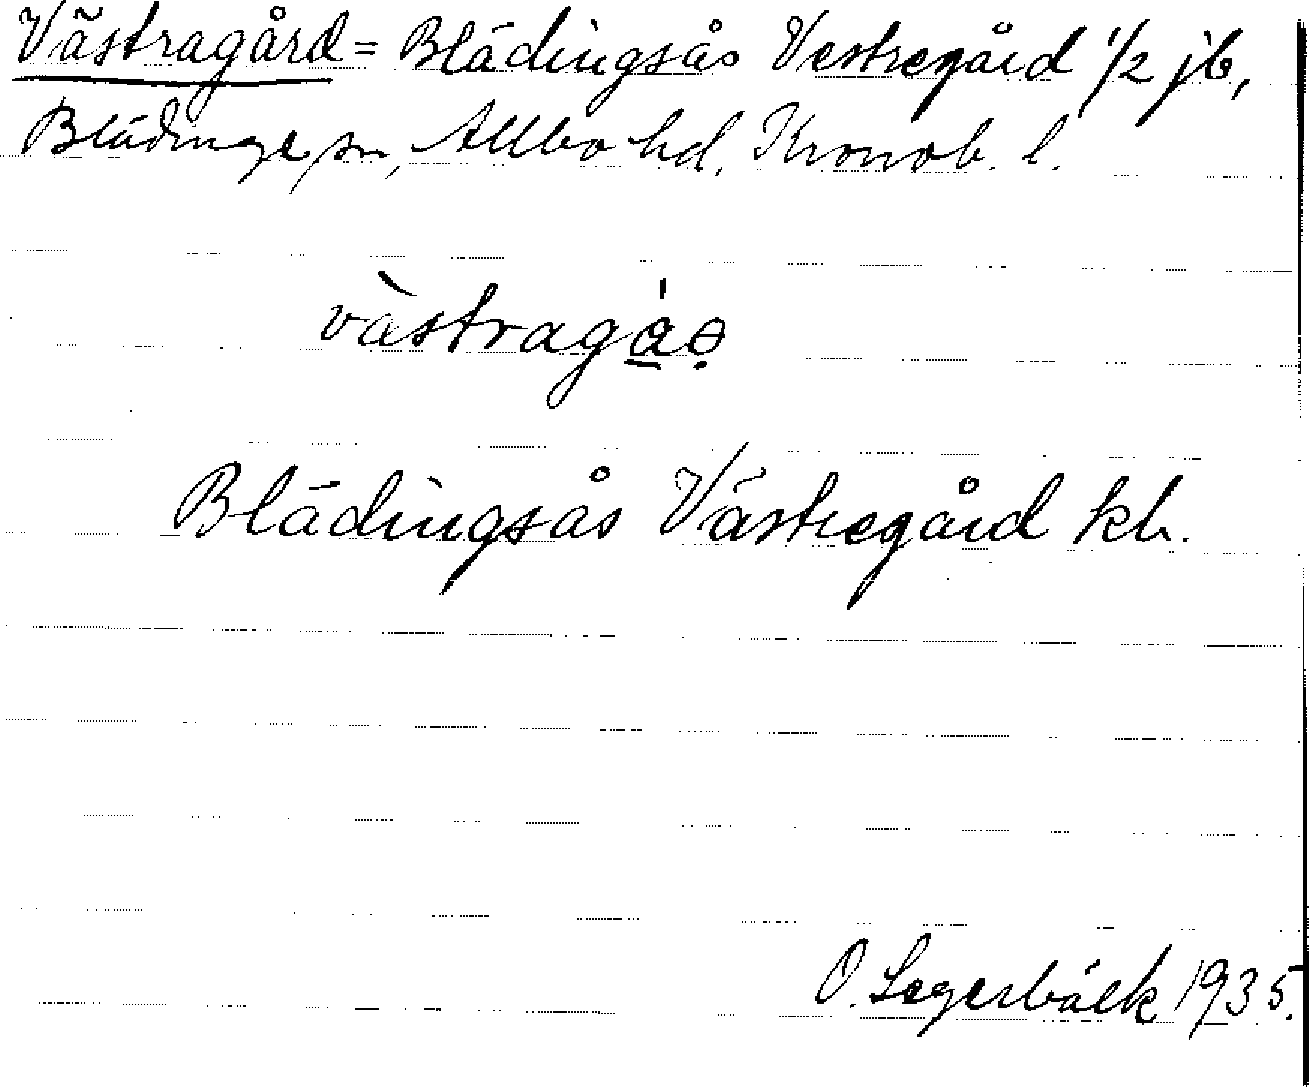 Västragård = Blädingsås Vestregård 1/2 jb,
Blädinge sn, Allbo hd, Kronob. l.
vàstragáo̤
Blädingsås Västregård kb.
O. Segerbäck 1935.